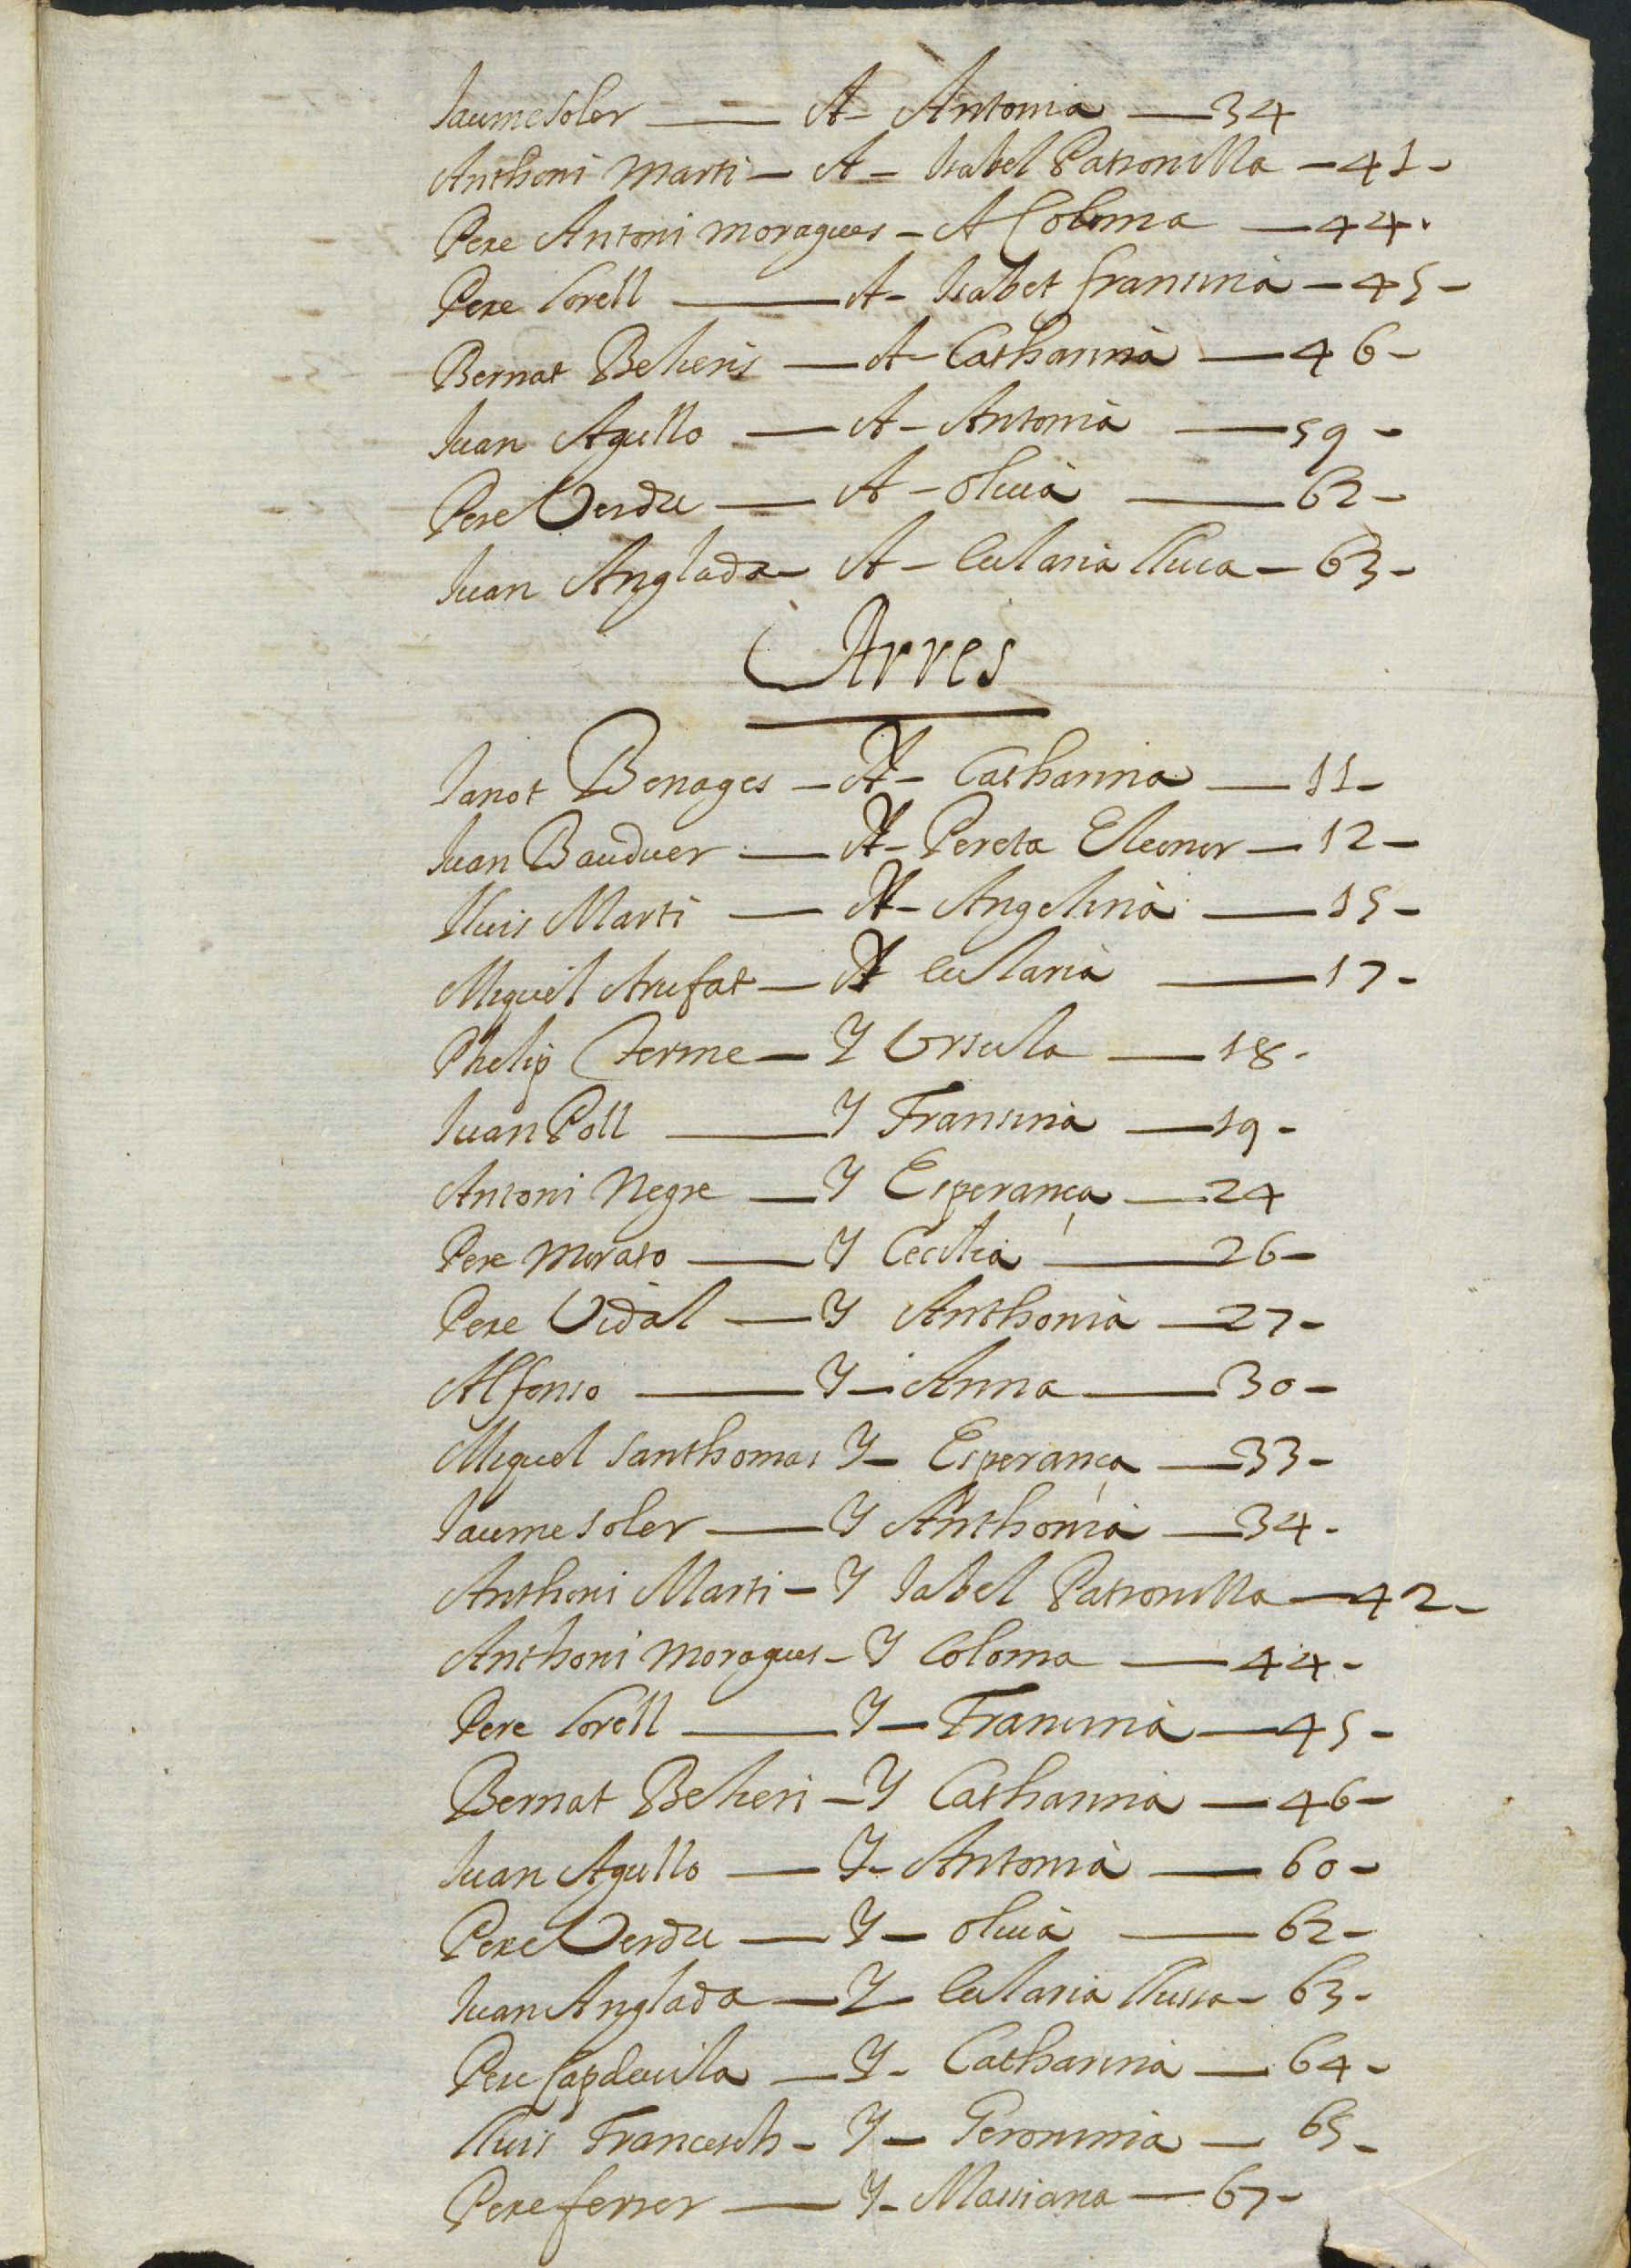 Jaume Soler — A- Antonia — 34
Anthoni Marti — A — Isabel Patronilla — 41 -
Pere Antoni Moragues - A Coloma — 44 .
Pere Corell — A- Isabet fransina — 45 -
Bernat Beheris — A- Catharina — 46 -
Juan Agullo — A - Antonia — 59 -
Pere Verdu — A - oliuia — 62 -
Juan Anglada — A - Eularia lluca — 63 -
Arres
Janot Benages — A - Catharina — 11 -
Juan Bauduer — A - Pereta Eleonor — 12 -
lluis Marti — A - Angelina — 15 -
Miquel Arufat — A Eularia — 17 -
Phelip Terme — Y Vrsula — 18 -
Juan Poll — Y Fransina — 19 -
Antoni Negre — Y Esperança — 24
Pere Morato — Y Cecilia — 26 -
Pere Vidal — Y Anthonia — 27 -
Alfonso — Y — Anna — 30 -
Miquel Santhomas Y — Esperança — 33 -
Jaume Soler — Y Anthonia — 34 -
Anthoni Marti — Y Isabel Patronilla — 42 -
Anthoni Moragues - Y Coloma — 44 -
Pere Corell — Y — Fransina — 45 -
Bernat Beheri — Y Catharina — 46 -
Juan Agullo — Y - Antonia — 60 -
Pere Verdu — Y — oliuia — 62 -
Juan Anglada — Y — Eularia llussa - 63 -
Pere Capdeuila — Y - Catharina — 64 -
lluis Francesch - Y — Geronima — 65 -
Pere ferrer — Y - Massiana — 67 -